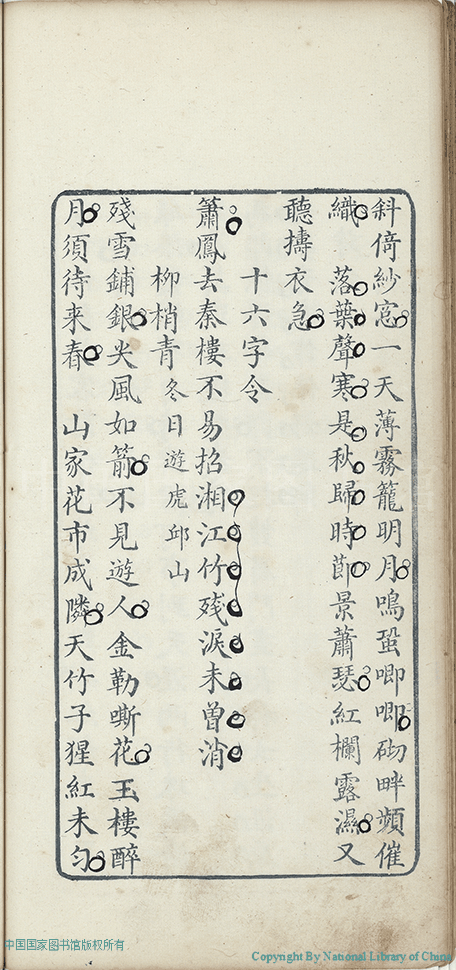 斜倚紗窓一天薄霧籠明月鳴蛩唧唧砌畔頻催
織　落葉聲寒是秋歸時節景蕭瑟紅欄露濕又
聽擣衣急
十六字令
簫鳳去秦樓不易招湘江竹残淚未曾消
柳梢青 冬日遊虎邱山
殘雪鋪銀尖風如箭不見遊人金勒嘶花玉樓醉
月須待来春　山家花市成隣天竹子猩紅未匀
中国国家图书馆版权所有
Copyright By National Library of China